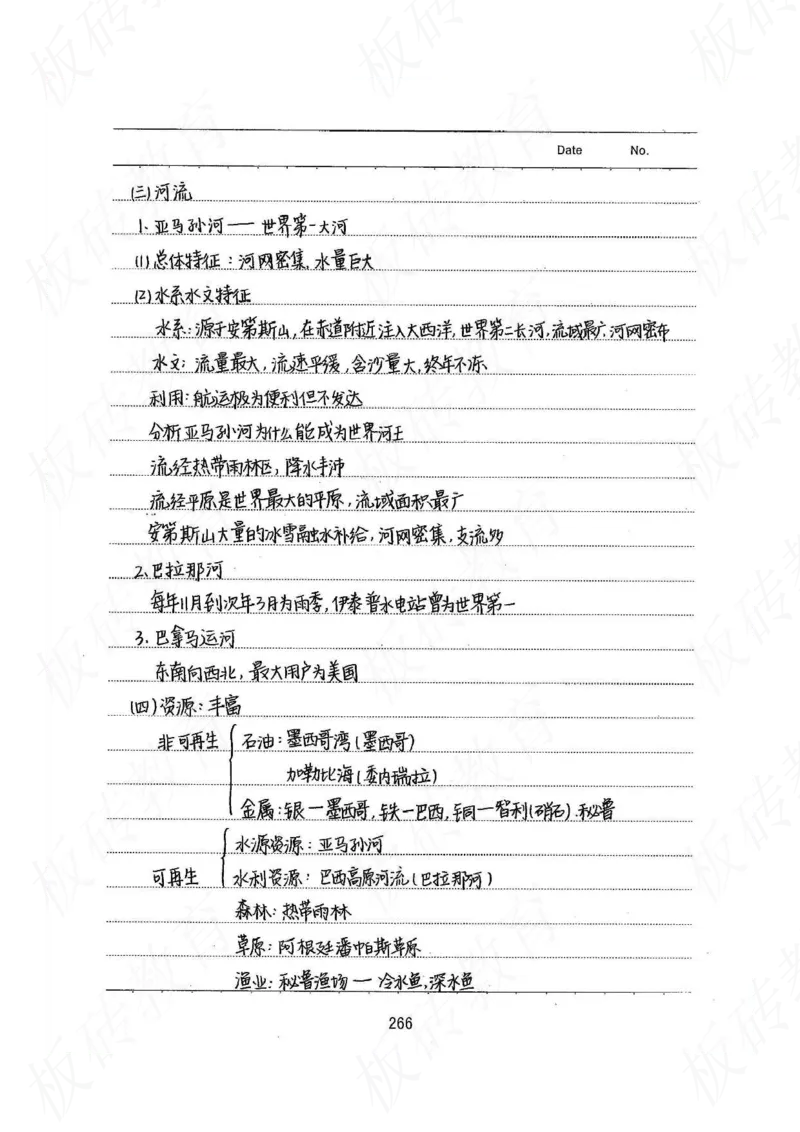 Date No.
(三)河流
1. 亚马孙河——世界第一大河
(1)总体特征：河网密集,水量巨大
(2)水系水文特征
水系:源于安第斯山,在赤道附近注入大西洋,世界第二长河,流域最广,河网密布
水文：流量最大,流速平缓,含沙量大,终年不冻
利用:航运极为便利但不发达
分析亚马孙河为什么能成为世界河王
流经热带雨林区，降水丰沛
流经平原是世界最大的平原，流域面积最广
安第斯山大量的冰雪融水补给,河网密集,支流多
2、巴拉那河
每年11月到次年3月为雨季,伊泰普水电站曾为世界第一
3. 巴拿马运河
东南向西北，最大用户为美国
(四)资源：丰富
非可再生 石油：墨西哥湾(墨西哥)
加勒比海(委内瑞拉)
金属：银—墨西哥,铁—巴西,铜—智利(硝石).秘鲁
水源资源：亚马孙河
可再生 水利资源：巴西高原河流(巴拉那河)
森林：热带雨林
草原：阿根廷潘帕斯草原
渔业：秘鲁渔场— 冷水鱼,深水鱼
266
板砖教育